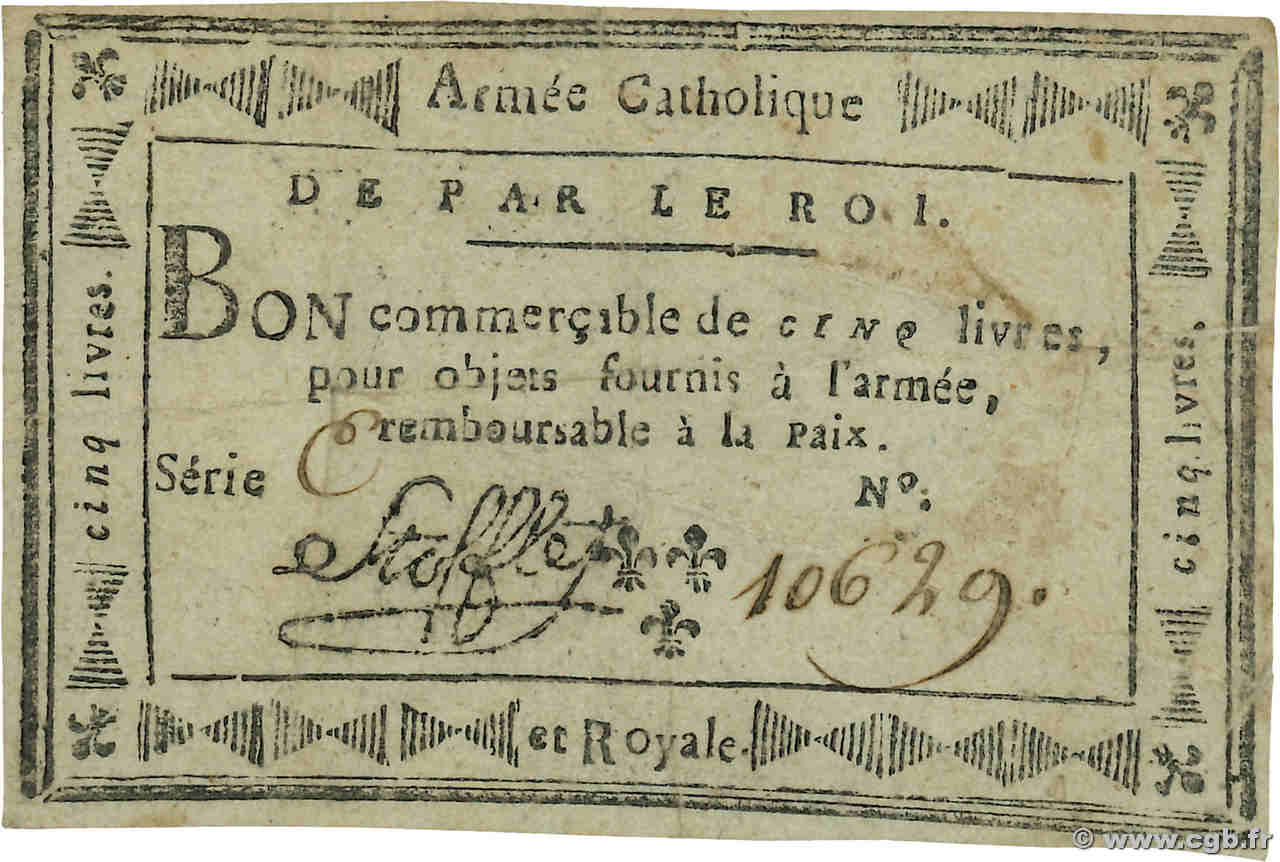 Armée Catholique
DE PAR LE ROI.
BON commerçible de CINQ livres,
pour objets fournis à l'armée,
remboursable à la Paix.
Série C
Nº:
Stofflet
10629.
cinq livres.
cinq livres.
et Royale.
© www.cgb.fr